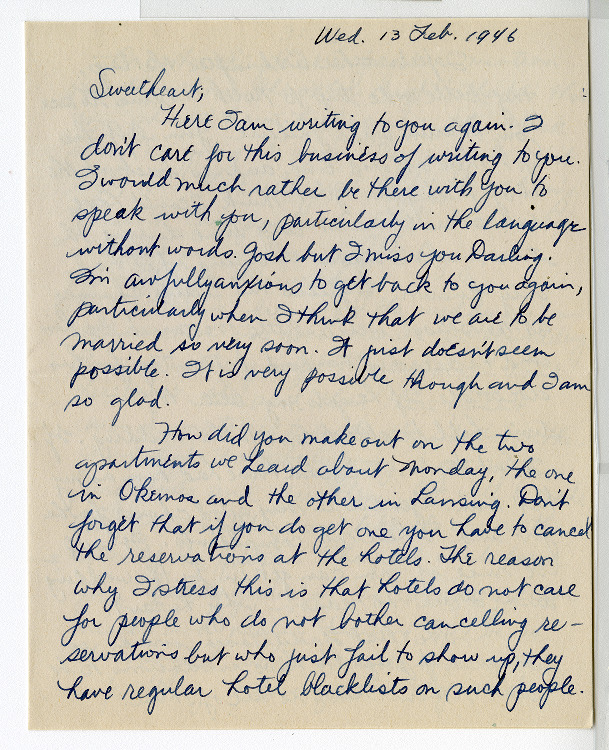 Wed. 13 Feb. 1946
Sweetheart,
Here I am writing to you again. I
don't care for this business of writing to you.
I would much rather be there with you to
speak with you, particularly in the language
without words. Gosh but I miss you Darling.
I'm awfully anxious to get back to you again,
particularly when I think that we are to be
married so very soon. It just doesn't seem
possible. It is very possible though and I am
so glad.
How did you make out on the two
apartments we heard about Monday, the one
in Okemos and the other in Lansing. Don't
forget that if you do get one you have to cancel
the reservations at the hotels. The reason
why I stress this is that hotels do not care
for people who do not bother cancelling re-
servations but who just fail to show up, they
have regular hotel blacklists on such people.